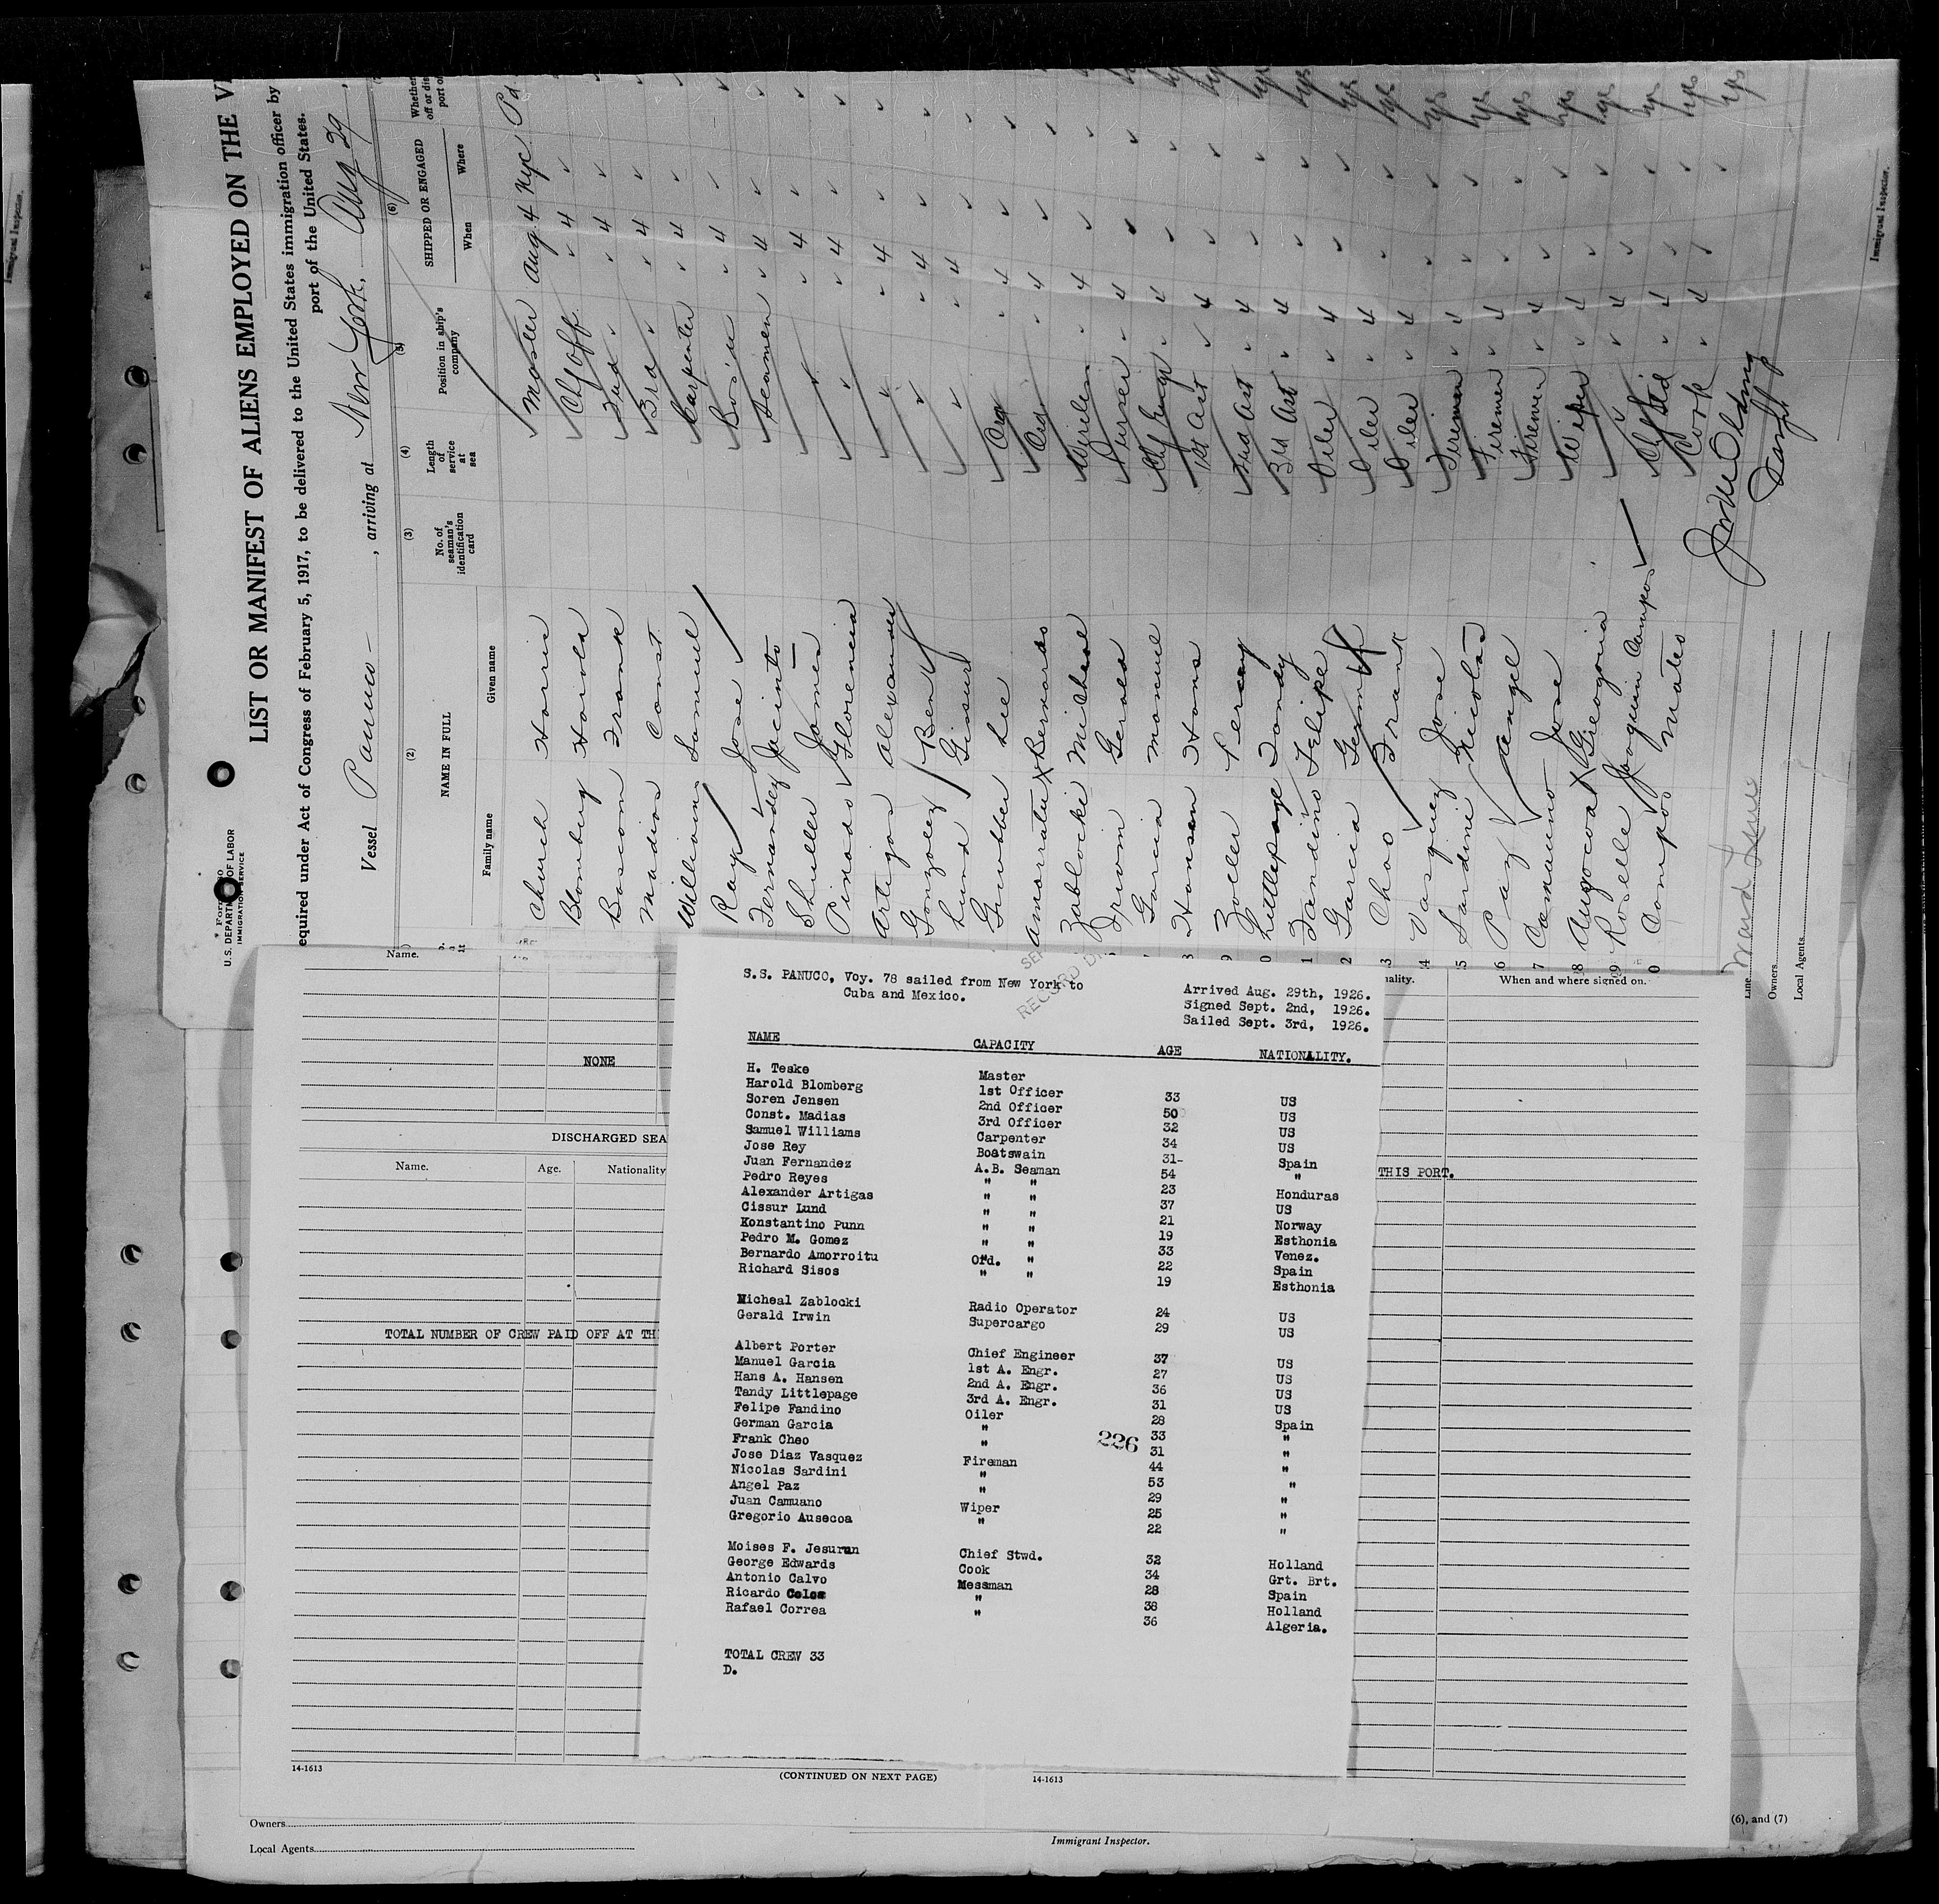 LIST OR MANIFEST OF ALIENS EMPLOYED ON THE
U.S. DEPARTMENT OF LABOR
IMMIGRATION SERVICE
equired under Act of Congress of February 5, 1917, to be delivered to the United States immigration officer by
port of the United States.
Vessel Panuco , arriving at New York. Aug 29,
(2) (3) (4) (5) (6)
NAME IN FULL
Family name Given name
No. of seaman's identification card
Length of service at sea
Position in ship's company
SHIPPED OR ENGAGED
When Where
Church Harris Master Aug. 4 Nyc Pd
Blomberg Harold Ch Off. 4
Bascom Frank 2nd 4
Madias Const. 3rd 4
Williams Samuel Carpenter 4
Ray Jose Bos'n 4
Fernandez Jacinto Seamen 4
Shuller James 4
Pinado Florencia 4
Artigas Alexander 4
Gonzolez Ben 4
Lund Gissur 4
Grubber Lee Ord 4
Bernardo Ord 4
Zablocki Micheal Wireless 4
Irwin Gerald Purser 4
Garcia Manuel
Hansen Hans
Zoller Percy
Littlepage Tandy 3rd Ast 4
Fandino Felipe Oiler 4
Garcia Oiler 4
Chao Frank Oiler 4
Vasquez Jose Firemen 4
Sardini Nicolas Firemen 4
Paz Angel Firemen 4
Camauno Jose Wiper 4
Gregoria 4
Roselle Joaquin Campos
Campos Mateo Cook 4
Line Ward Line
Owners
Local Agents
Immigrant Inspector.
S.S. PANUCO, Voy. 78 sailed from New York to
Cuba and Mexico.
Arrived Aug. 29th, 1926.
Signed Sept. 2nd, 1926.
Sailed Sept. 3rd, 1926.
NAME CAPACITY AGE NATIONALITY.
H. Teske Master
Harold Blomberg 1st Officer 33 US
Soren Jensen 2nd Officer 50 US
Const. Madias 3rd Officer 32 US
Samuel Williams Carpenter 34 US
Jose Rey Boatswain 31- Spain
Juan Fernandez A.B. Seaman 54 "
Pedro Reyes " " 23 Honduras
Alexander Artigas " " 37 US
Cissur Lund " " 21 Norway
Konstantino Punn " " 19 Esthonia
Pedro M. Gomez " " 33 Venez.
Bernardo Amorroitu Ord. " 22 Spain
Richard Sisos " " 19 Esthonia
Micheal Zablocki Radio Operator 24 US
Gerald Irwin Supercargo 29 US
Albert Porter Chief Engineer 37 US
Manuel Garcia 1st A. Engr. 27 US
Hans A. Hansen 2nd A. Engr. 36 US
Tandy Littlepage 3rd A. Engr. 31 US
Felipe Fandino Oiler 28 Spain
German Garcia " 33 "
Frank Cheo " 31 "
Jose Diaz Vasquez Fireman 44 "
Nicolas Sardini " 53 "
Angel Paz " 29 "
Juan Camuano Wiper 25 "
Gregorio Ausecoa " 22 "
226
Moises F. Jesurun Chief Stwd. 32 Holland
George Edwards Cook 34 Grt. Brt.
Antonio Calvo Messman 28 Spain
Ricardo " 38 Holland
Rafael Correa " 36 Algeria.
TOTAL CREW 33
D.
Name.
NONE
When and where signed on.
DISCHARGED SEA
THIS PORT.
Name. Age. Nationality
TOTAL NUMBER OF CREW PAID OFF AT TH
14-1613
(CONTINUED ON NEXT PAGE)
14-1613
(6), and (7)
Owners
Local Agents
Immigrant Inspector.